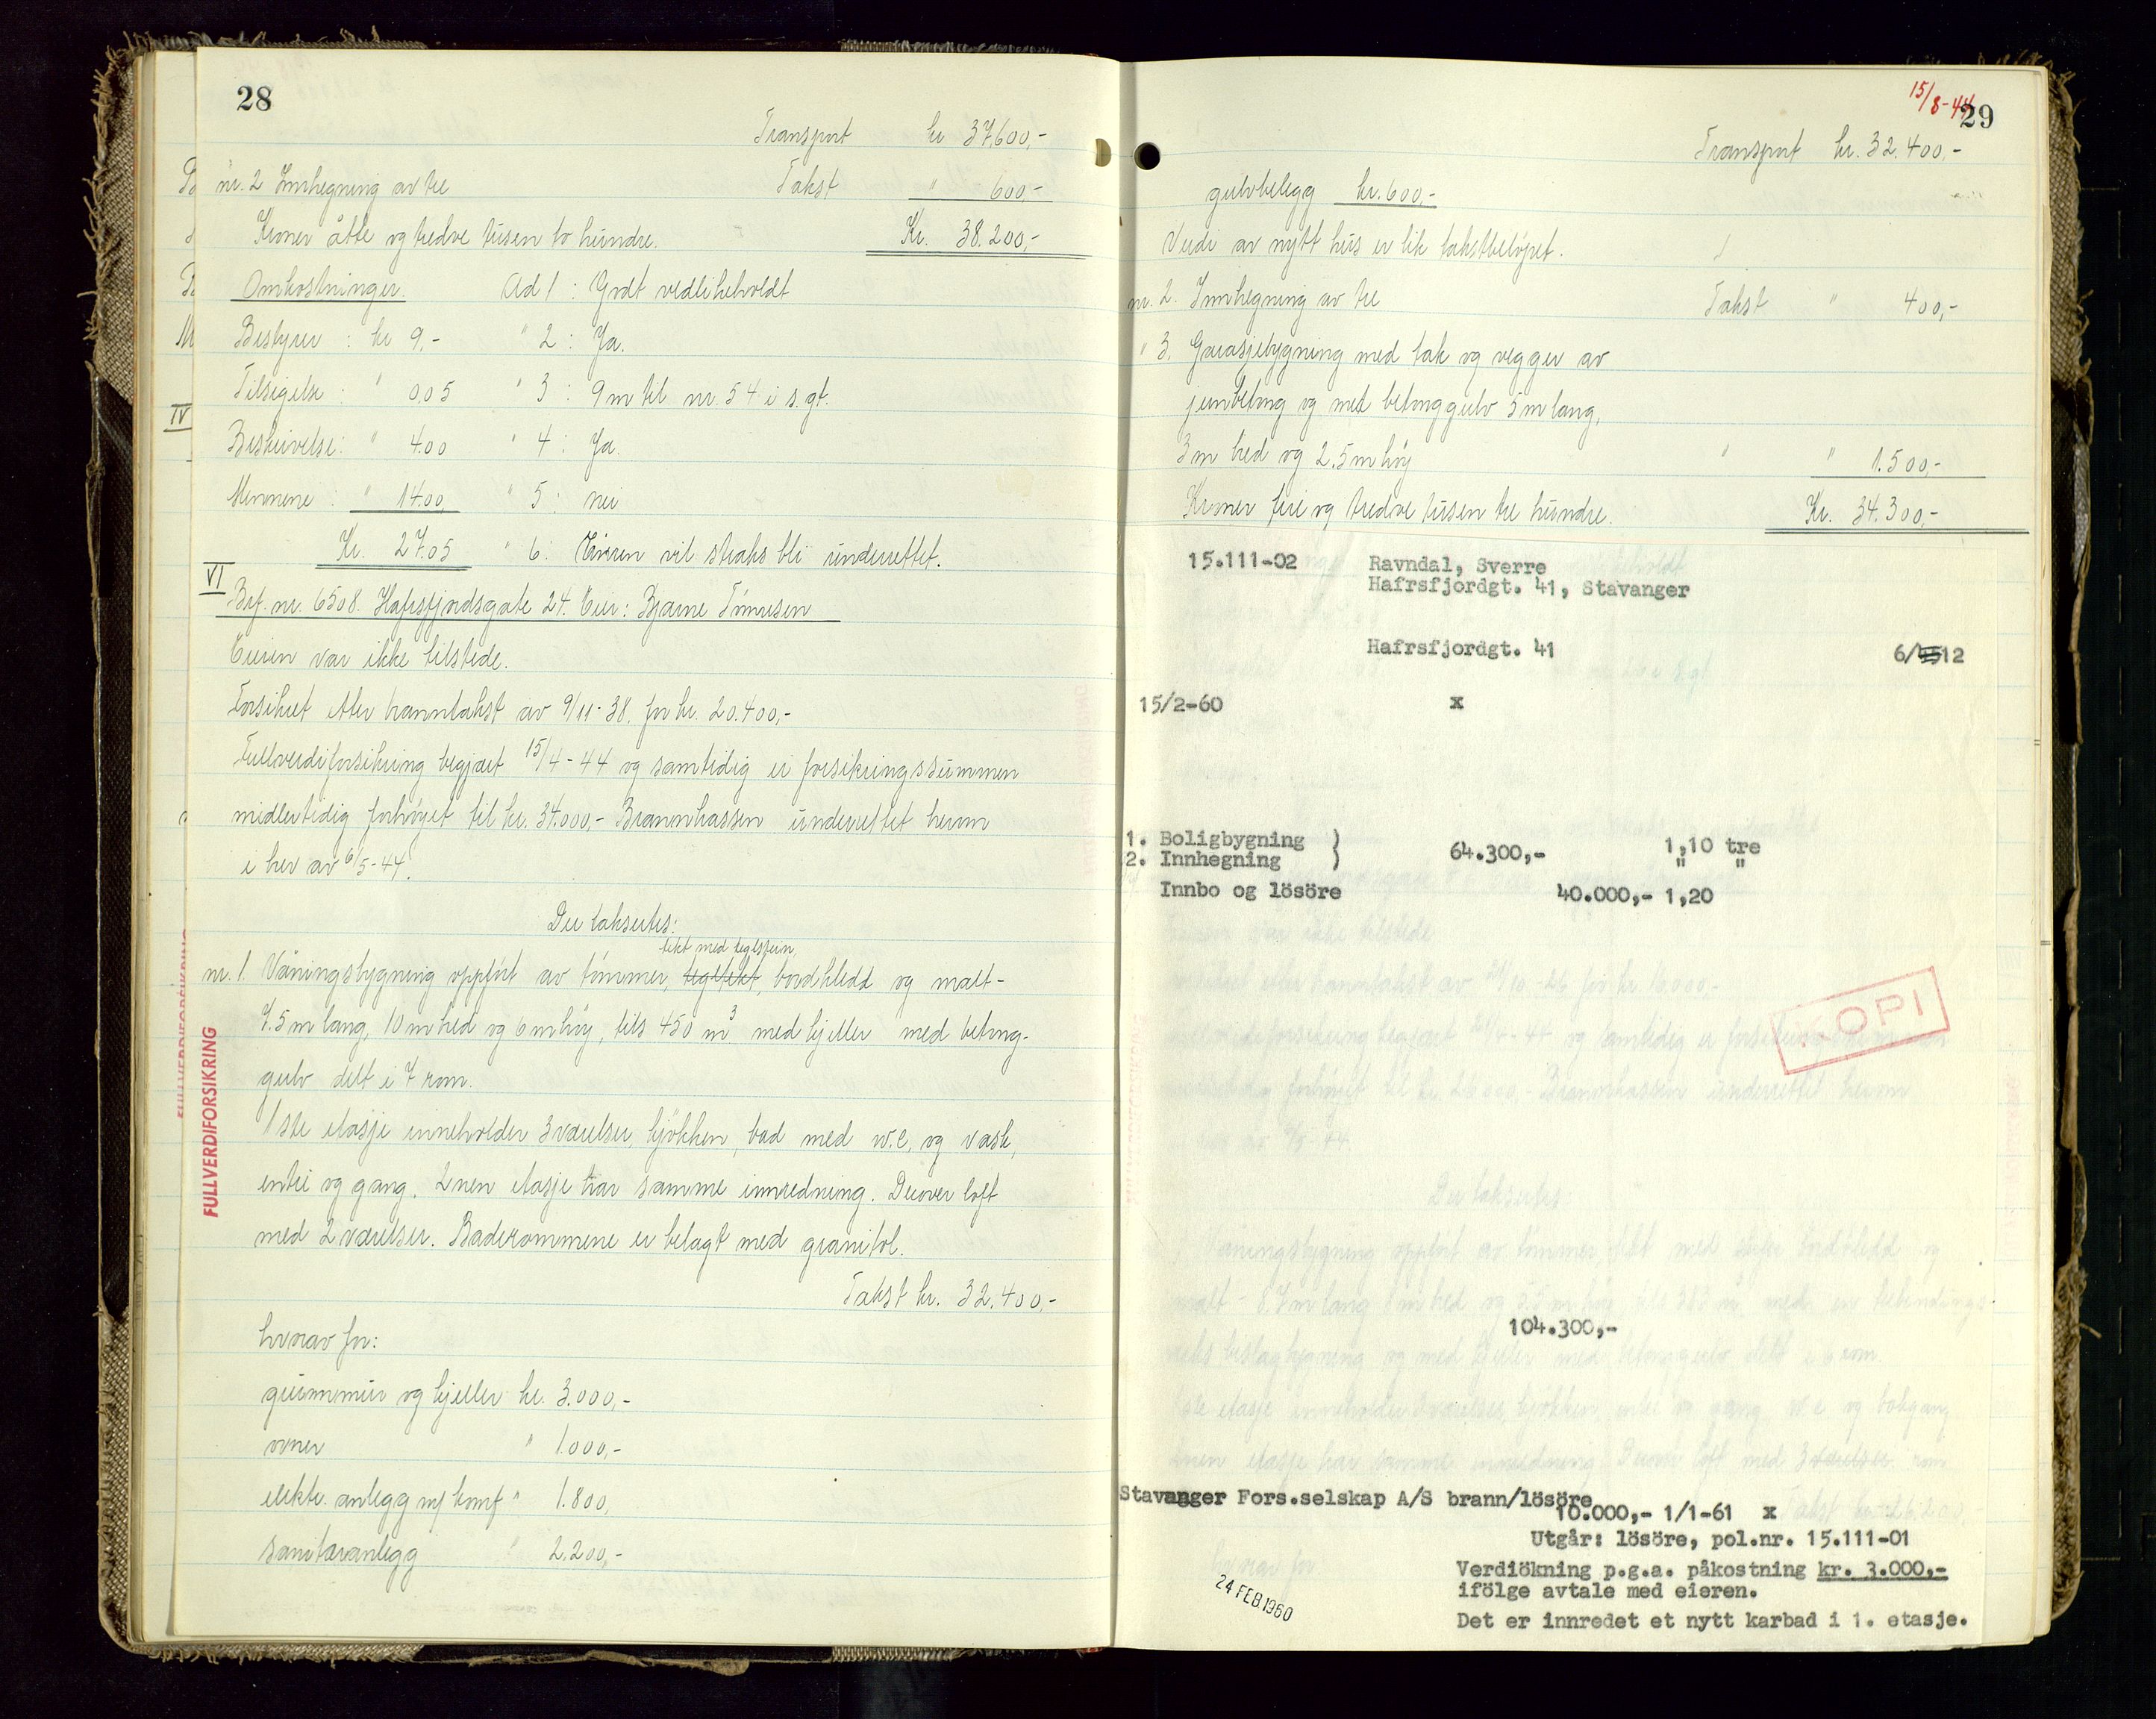 28
Transport kr 37.600,-
nr. 2 Innhegning av tre Takst " 600,-
Kroner åtte og tredve tusen to hundre. Kr. 38.200,-
Omkostninger. Ad 1 : Godt vedlikeholdt
Bestyrer : kr 9,- " 2 : Ja.
Tilsigelse : " 0,05 " 3 : 9 m til nr. 54 i s. gt.
Beskrivelse : " 4.00 " 4 : Ja.
Mennene : " 14.00 " 5 : nei
Kr. 27.05 " 6 : Eieren vil straks bli underrettet.
VI
Brf. nr. 6508. Hafrsfjordsgate 24. Eier: Bjarne
Eieren var ikke tilstede.
Forsikret etter branntakst av 9/11-38. for kr. 20.400,-
Fullverdiforsikring begjært 15/4-44 og samtidig er forsikringssummen
midlertidig forhöyet til kr. 34.000,- Brannkassen underrettet herom
i brev av 6/5-44.
Der takseres:
tekt med teglstein
nr. 1. Våningsbygning oppfört av tömmer, tegltekt, bordkledd og malt-
7.5 m lang, 10 m bred og 6 m höy, tils 450 m3 med kjeller med betong-
gulv delt i 7 rom.
1ste etasje inneholder 3 værelser, kjökken, bad med w.c. og vask,
entré og gang. 2nen etasje har samme innredning. Derover loft
med 2 værelser. Baderommene er belagt med granitol.
Takst kr. 32.400,-
hvorav for:
grunnmur og kjeller kr. 3.000,-
ovner " 1.000,-
elektr. anlegg m/ komf " 1.800,
sanitæranlegg " 2.200,-
FULLVERDIFORSIKRING
15/8-44
29
Transport kr. 32.400,-
gulvbelegg kr. 600,-
Verdi av nytt hus er lik takstbelöpet.
nr. 2. Innhegning av tre Takst " 400,-
" 3. Garasjebygning med tak og vegger av
jernbetong og med betonggulv 5 m lang,
3 m bred og 2.5 m höy " " 1.500,-
Kroner fire og tredve tusen tre hundre. Kr. 34.300,-
15.111-02 Ravndal, Sverre
Hafrsfjordgt. 41, Stavanger
Hafrsfjordgt. 41 6/12
15/2-60 x
1. Boligbygning } 64.300,- 1,10 tre
2. Innhegning } " "
Innbo og lösöre 40.000,- 1,20
KOPI
104.300,-
Stavanger Fors.selskap A/S brann/lösöre
10.000,- 1/1-61 x
Utgår: lösöre, pol.nr. 15.111-01
Verdiökning p.g.a. påkostning kr. 3.000,-
ifölge avtale med eieren.
24 FEB 1960
Det er innredet et nytt karbad i 1. etasje.